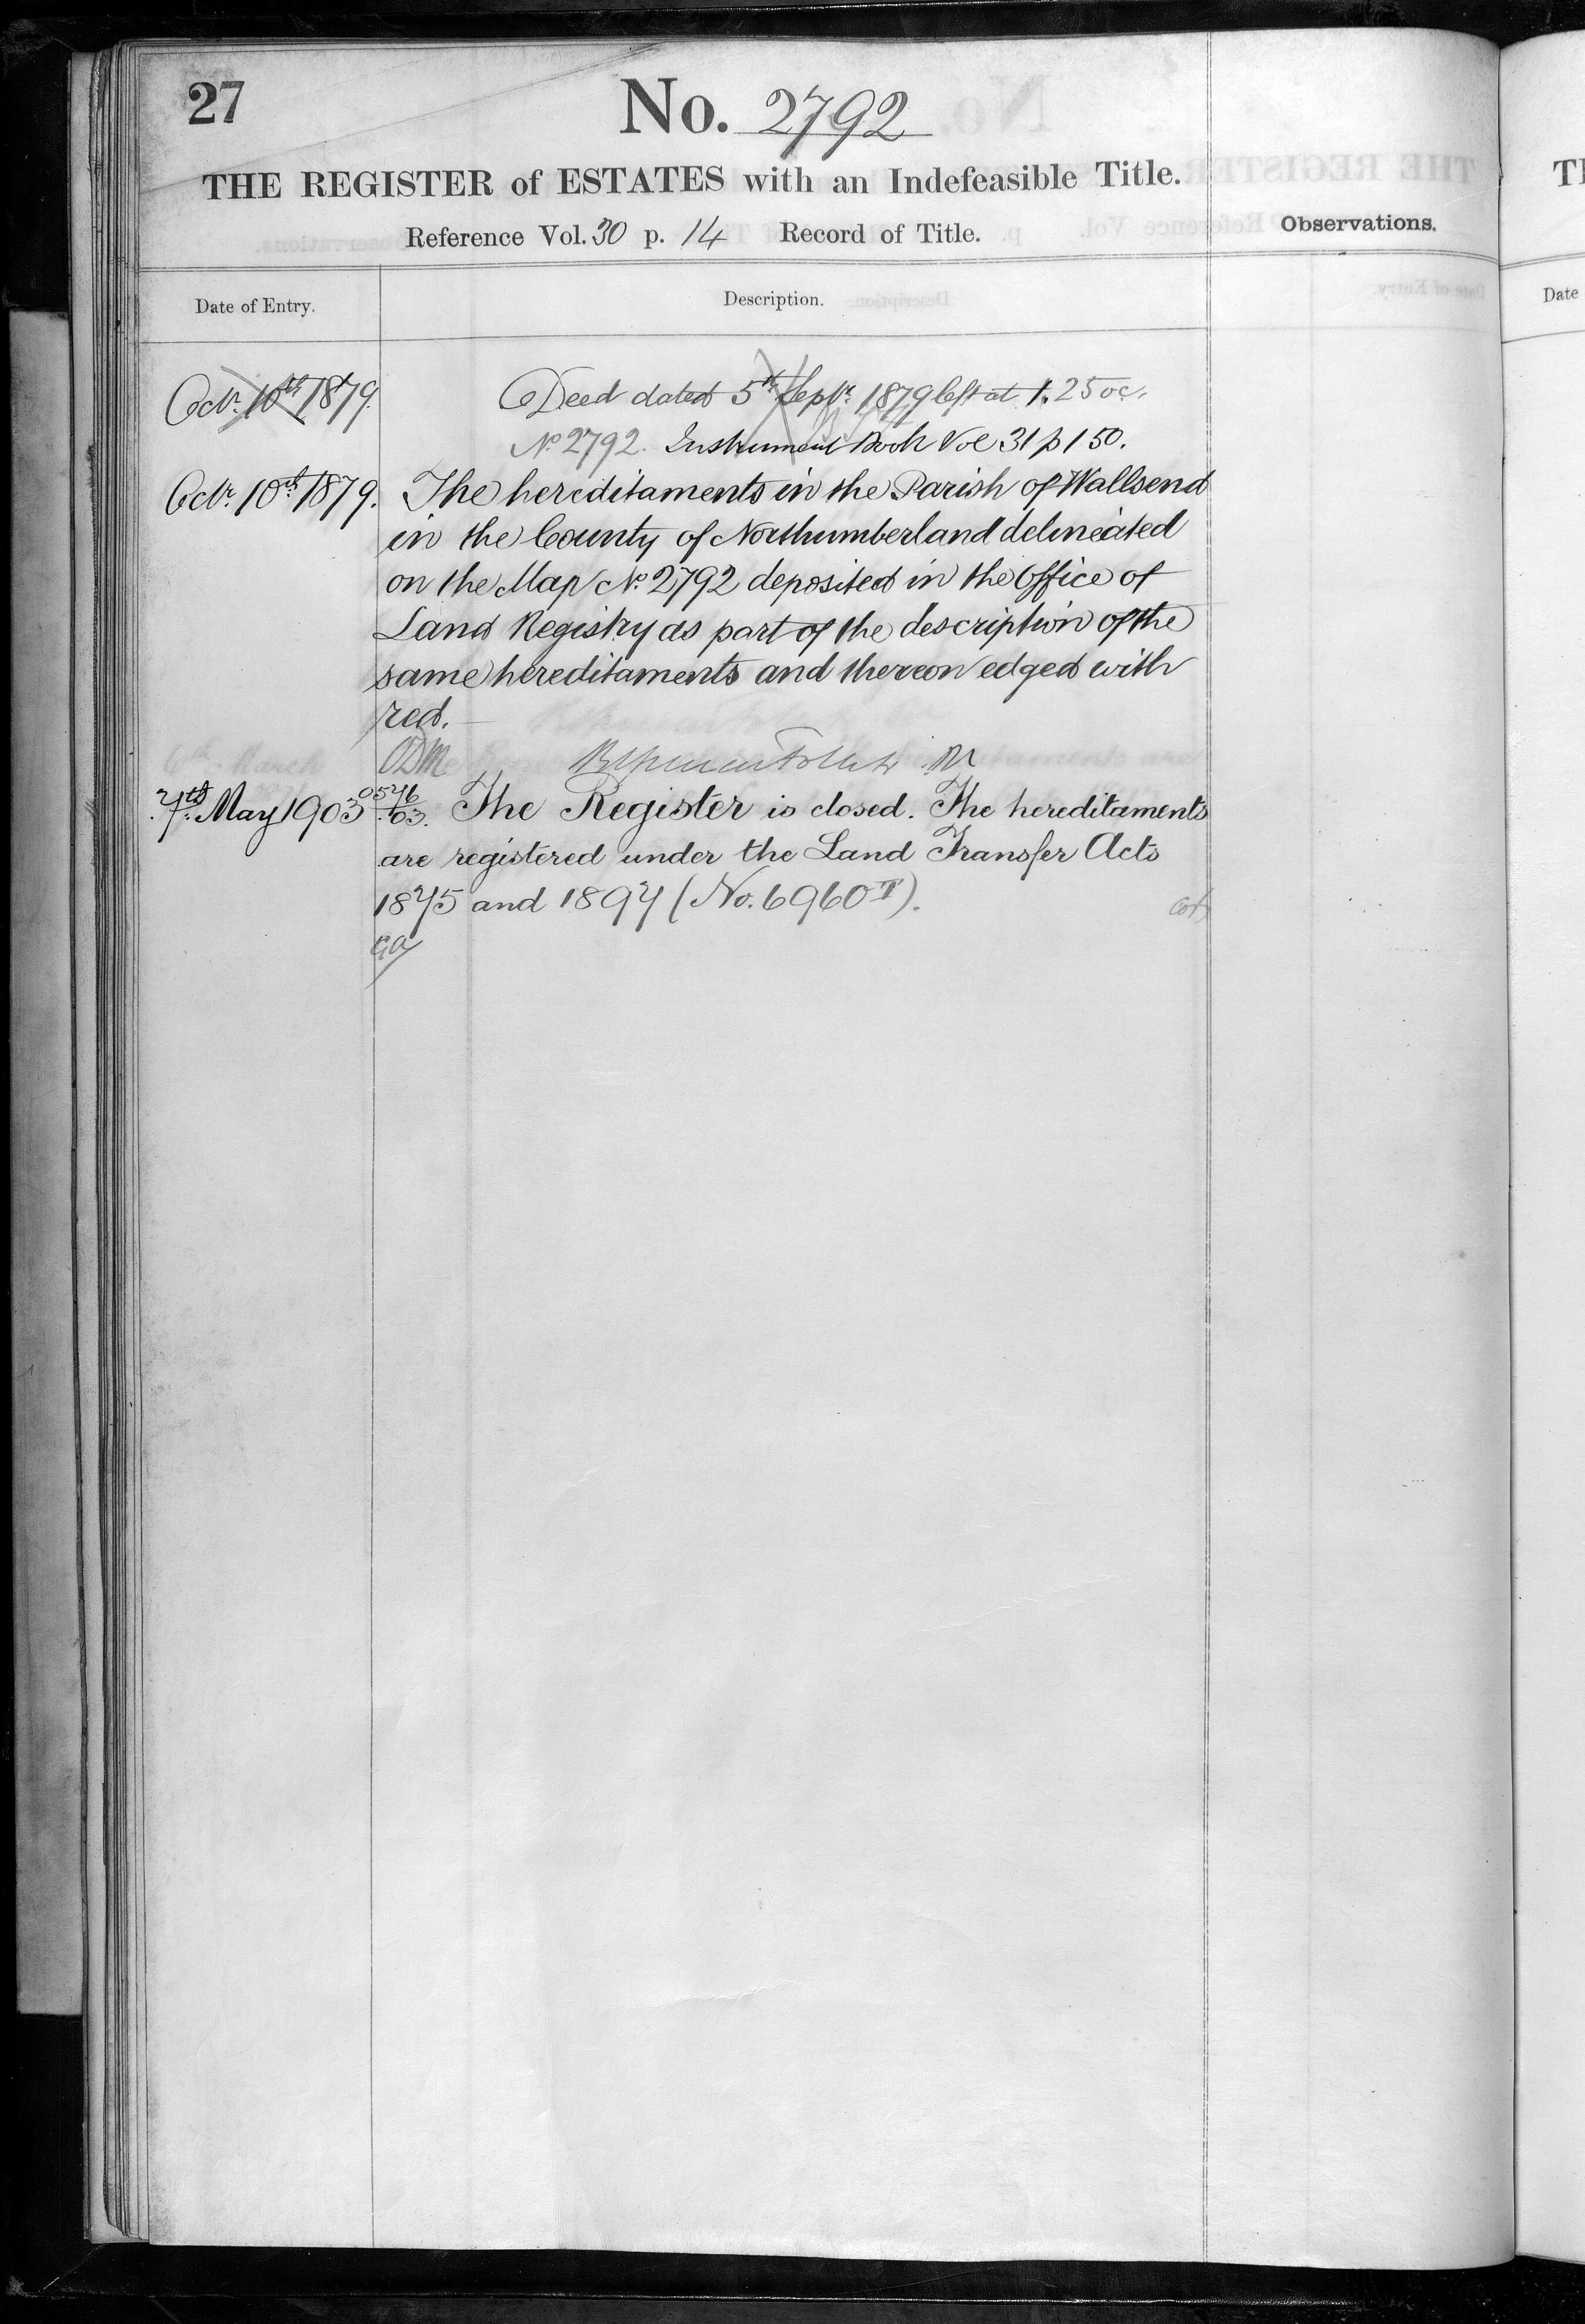 27
No. 2792
THE REGISTER of ESTATES with an Indefeasible Title.
Reference Vol. 30 p. 14 Record of Title.
Observations.
Date of Entry.
Description.
Octr. 10th 1879.
Deed dated 5th Septr. 1879 left at 1.25 oc.
No. 2792. Instrument Book Vol 31 p 150.
Octr. 10th 1879.
The hereditaments in the Parish of Wallsend
in the County of Northumberland delineated
on the Map No. 2792 deposited in the Office of
Land Registry as part of the description of the
same hereditaments and thereon edged with
red.
7th May 1903
0576/03. The Register is closed. The hereditaments
are registered under the Land Transfer Acts
1875 and 1897 (No. 6960 II).
Date